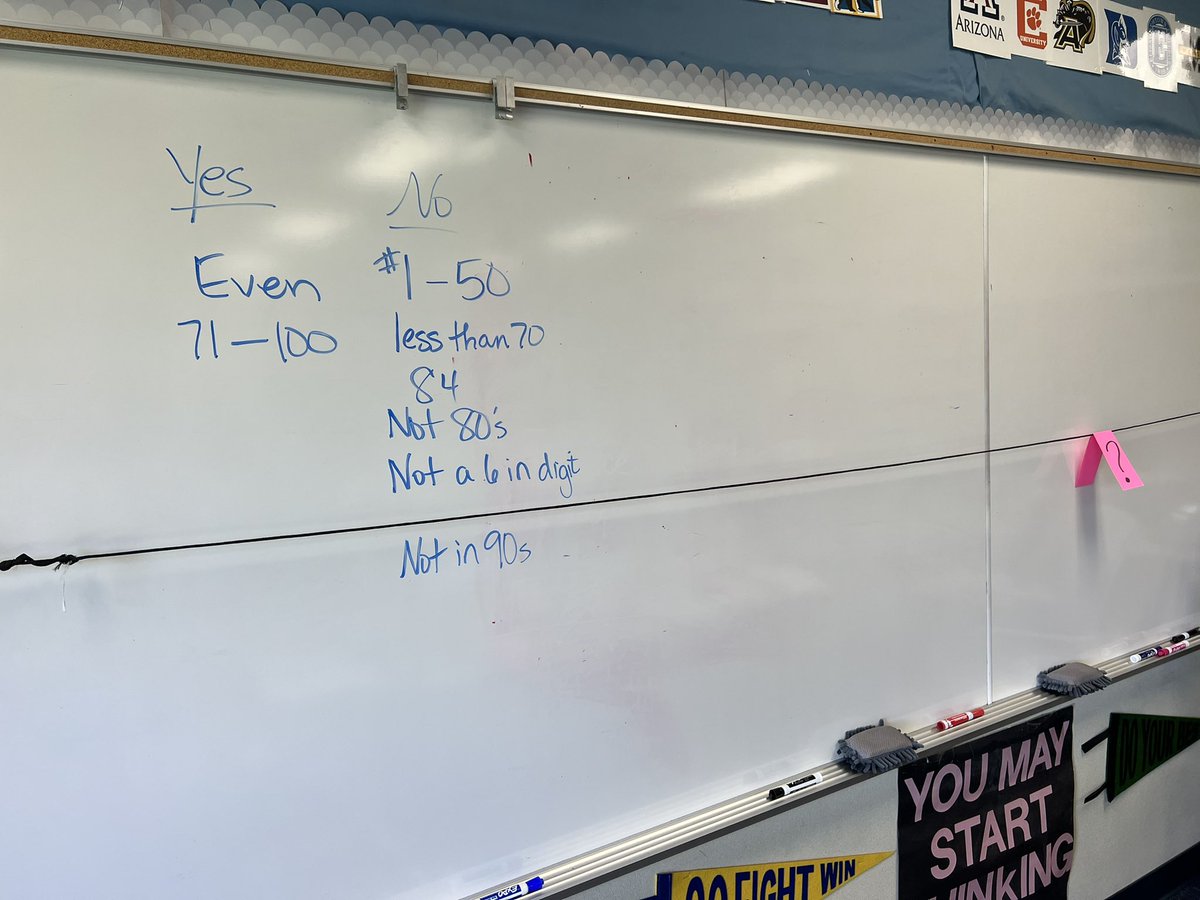 ARIZONA
UNIVERSITY
A
Yes
No
Even
#1-50
71-100
less than 70
84
Not 80's
Not a 6 in digit
Not in 90s
?
YOU MAY
START
THINKING
GO FIGHT WIN
DO YOUR